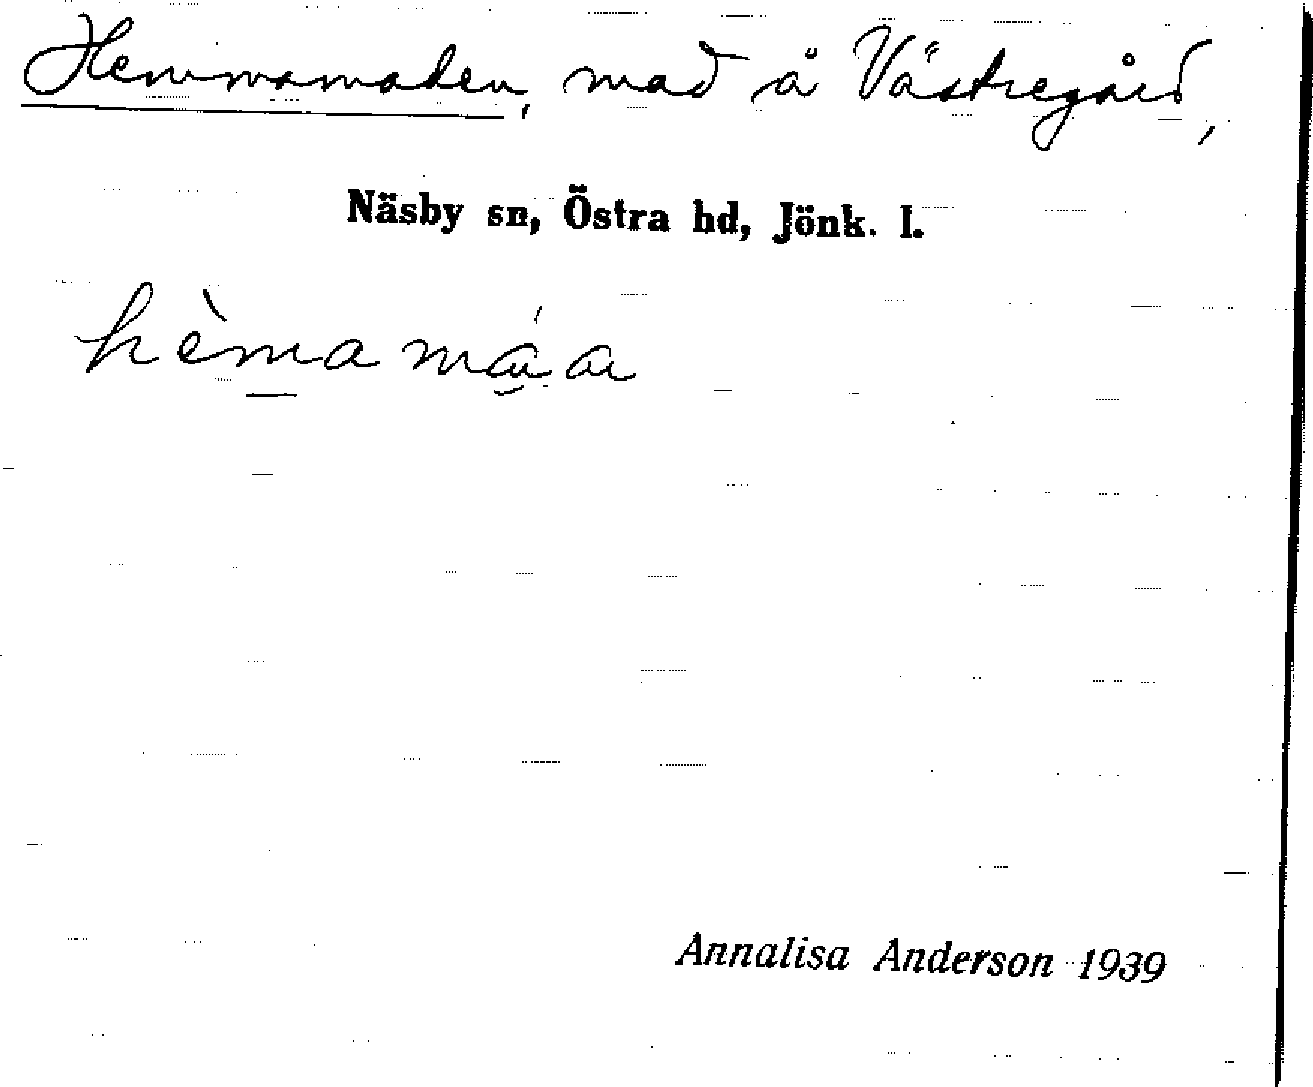 Hemmamaden, mad å Västregård,
Näsby sn, Östra hd, Jönk. l.
hèmamá̤a
Annalisa Anderson 1939